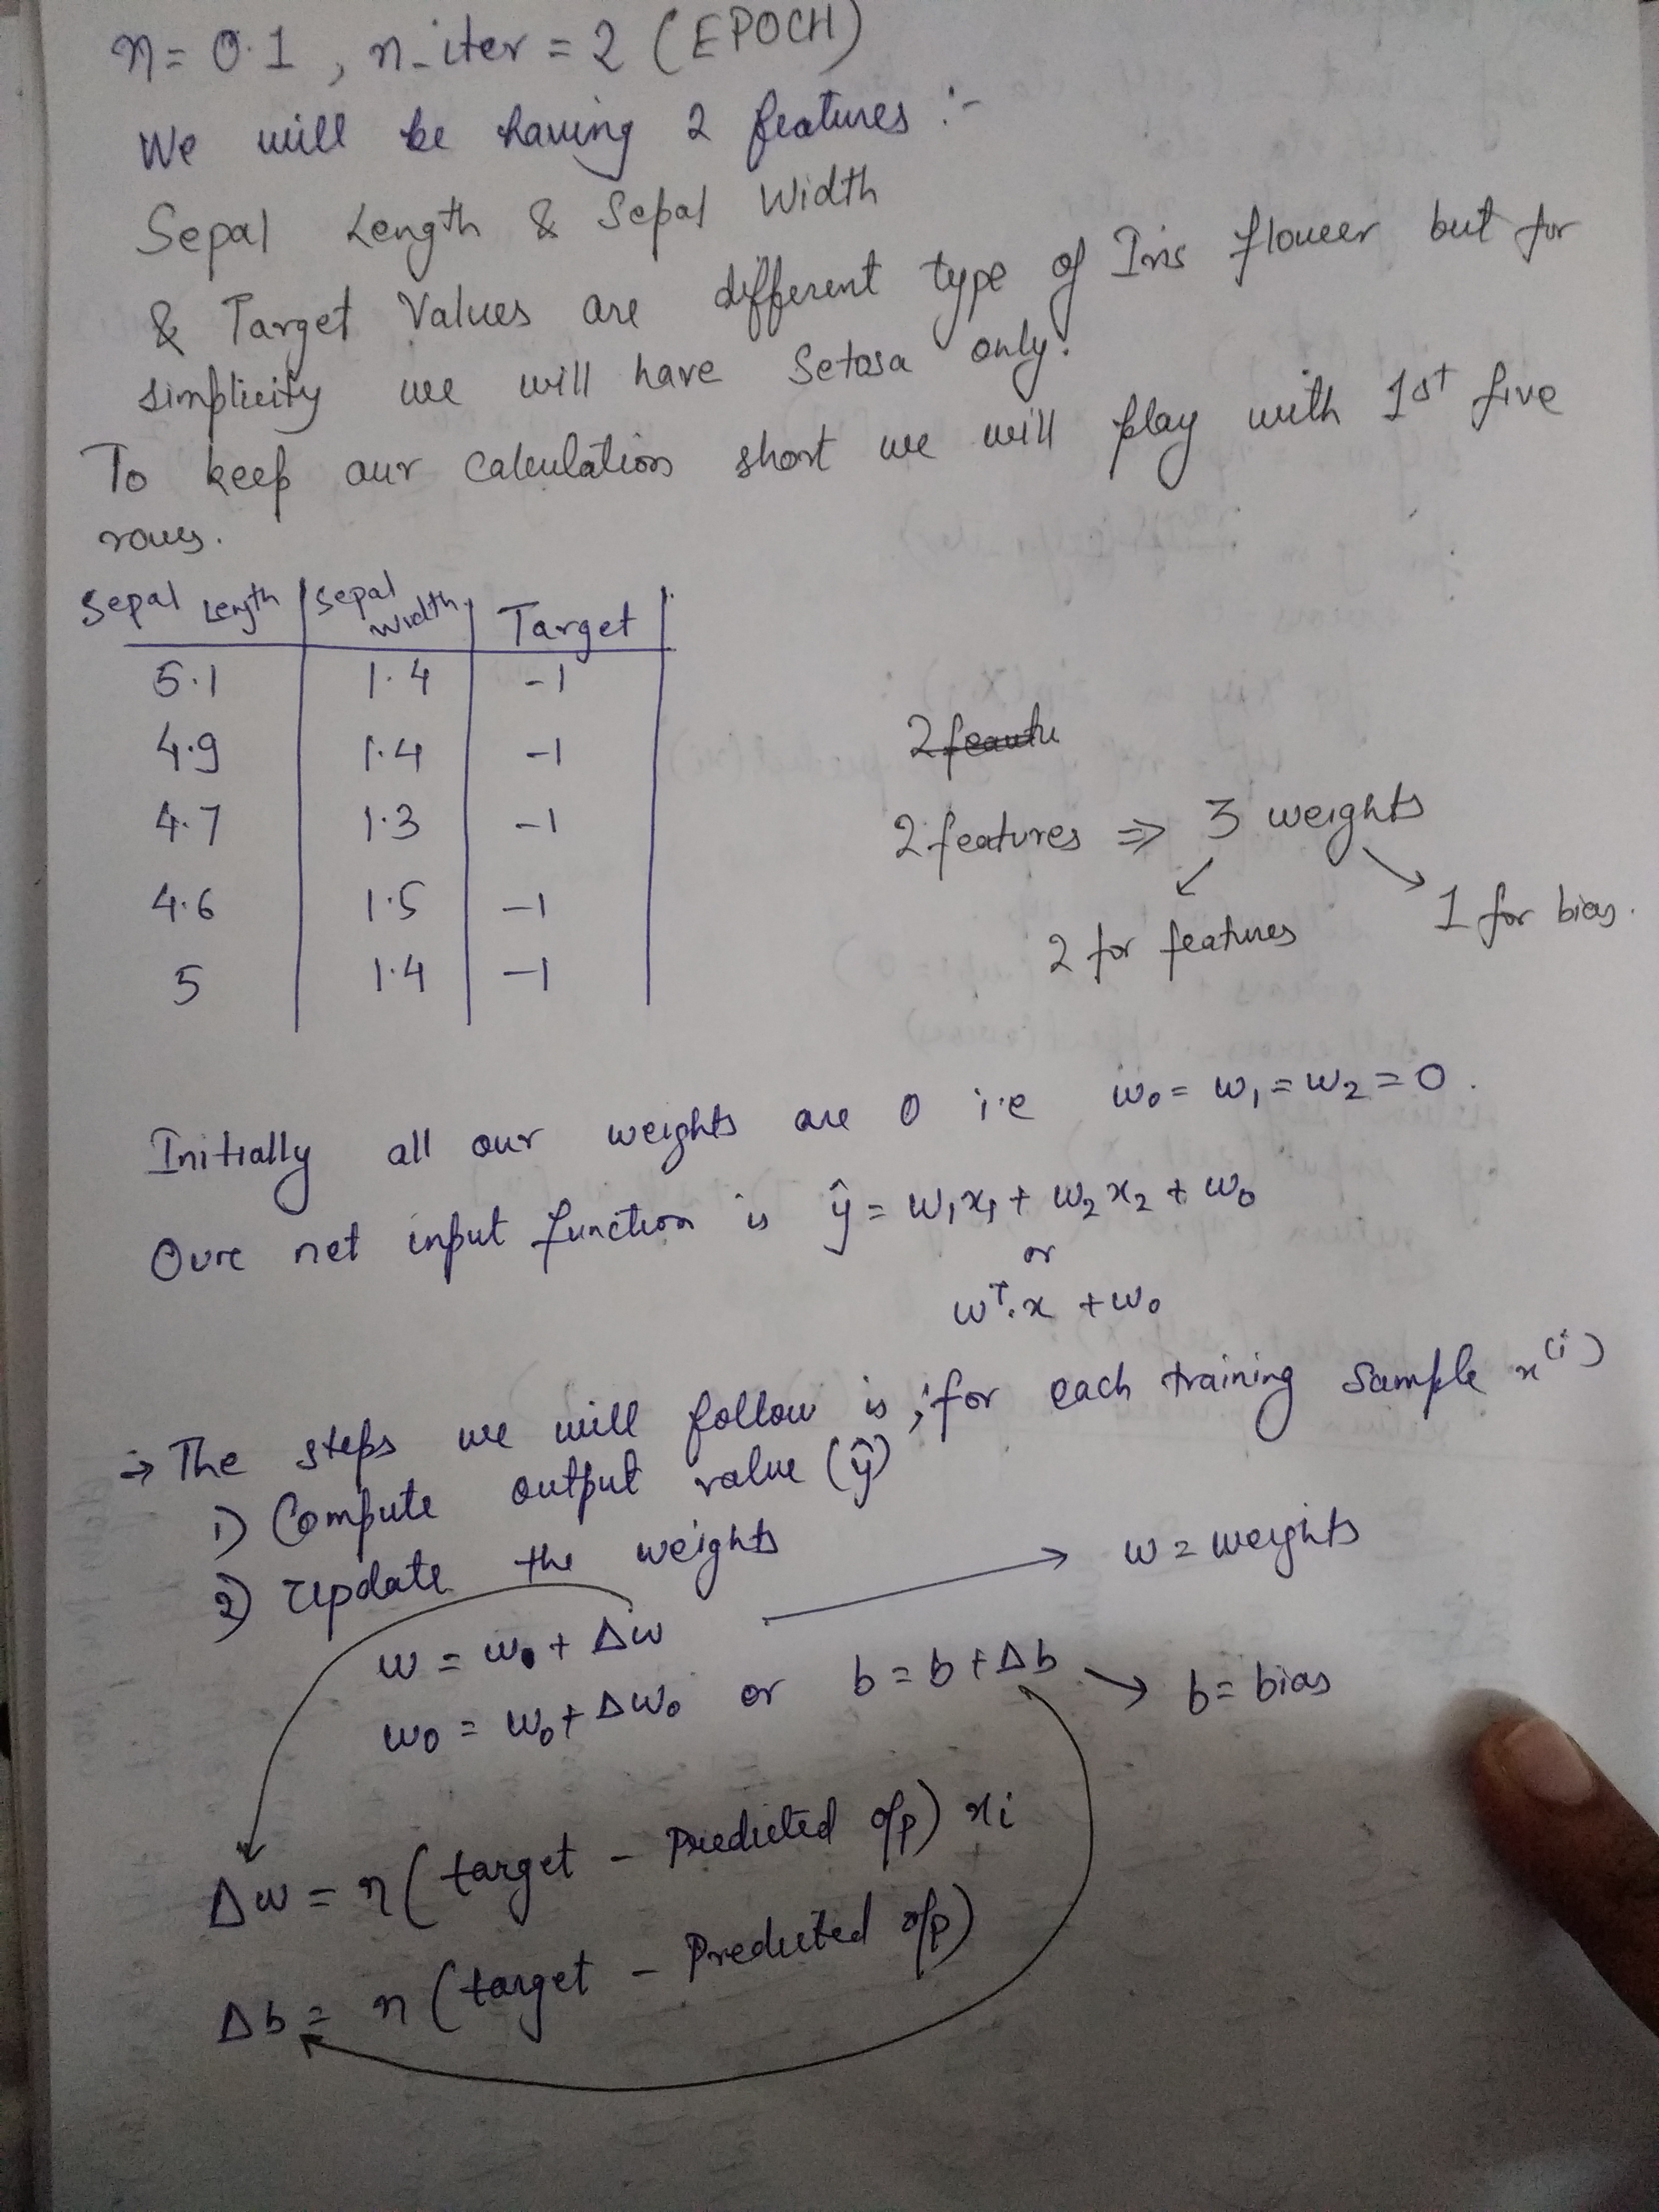 η = 0.1 , n_iter = 2 (EPOCH)
We will be having 2 features :-
Sepal Length & Sepal Width
& Target Values are different type of Iris flower but for
simplicity we will have Setosa only.
To keep our calculation short we will play with 1st five
rows.
Sepal Length | Sepal Width | Target
5.1 | 1.4 | -1
4.9 | 1.4 | -1
4.7 | 1.3 | -1
4.6 | 1.5 | -1
5 | 1.4 | -1
2 features ⇒ 3 weights
2 for features
1 for bias.
Initially all our weights are 0 i.e w₀ = w₁ = w₂ = 0 .
Oure net input function is ŷ = w₁x₁ + w₂x₂ + w₀
or
wᵀ.x + w₀
→ The steps we will follow is ; for each training sample x⁽ⁱ⁾
1) Compute output value (ŷ)
2) Update the weights
w = w₀ + Δw → w = weights
w₀ = w₀ + Δw₀ or b = b + Δb → b = bias
Δw = η ( target - Predicted o/p) xi
Δb = η (target - Predicted o/p)